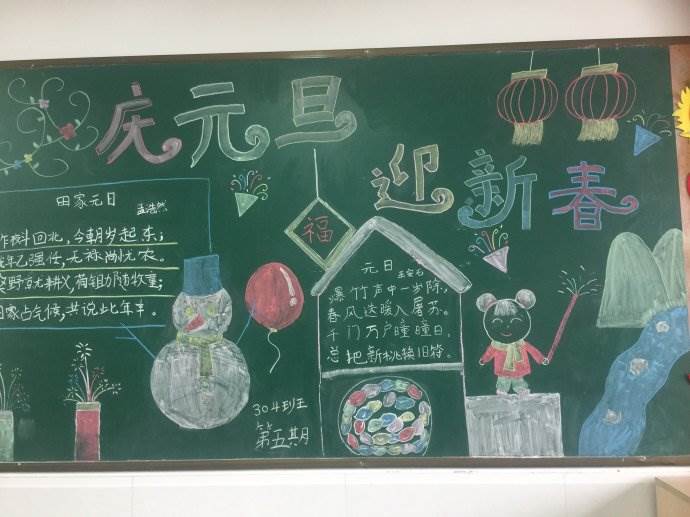 庆元旦
迎新春
福
田家元日
孟浩然
斗回北,今朝岁起东;
年已强仕,无禄尚忧农。
野就耕父,荷锄随牧童;
家占气候,共说此年丰。
元日
王安石
爆竹声中一岁除,
春风送暖入屠苏。
千门万户曈曈日,
总把新桃换旧符。
304班
第五期